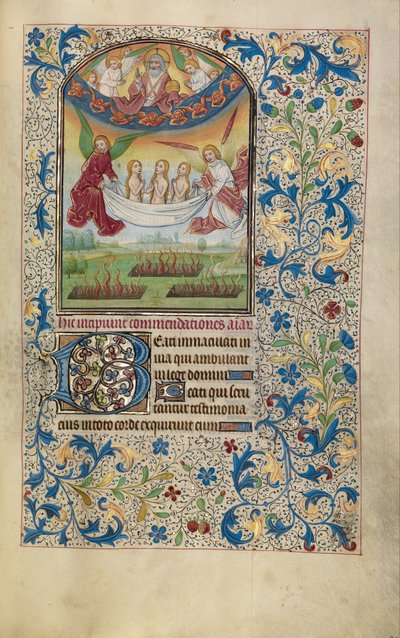 Hic incipiunt commendationes aīaȝ
Beati immaculati in
uia qui ambulant
in lege domini
Beati qui scru
tantur testimonia
eius in toto corde exquirunt eum